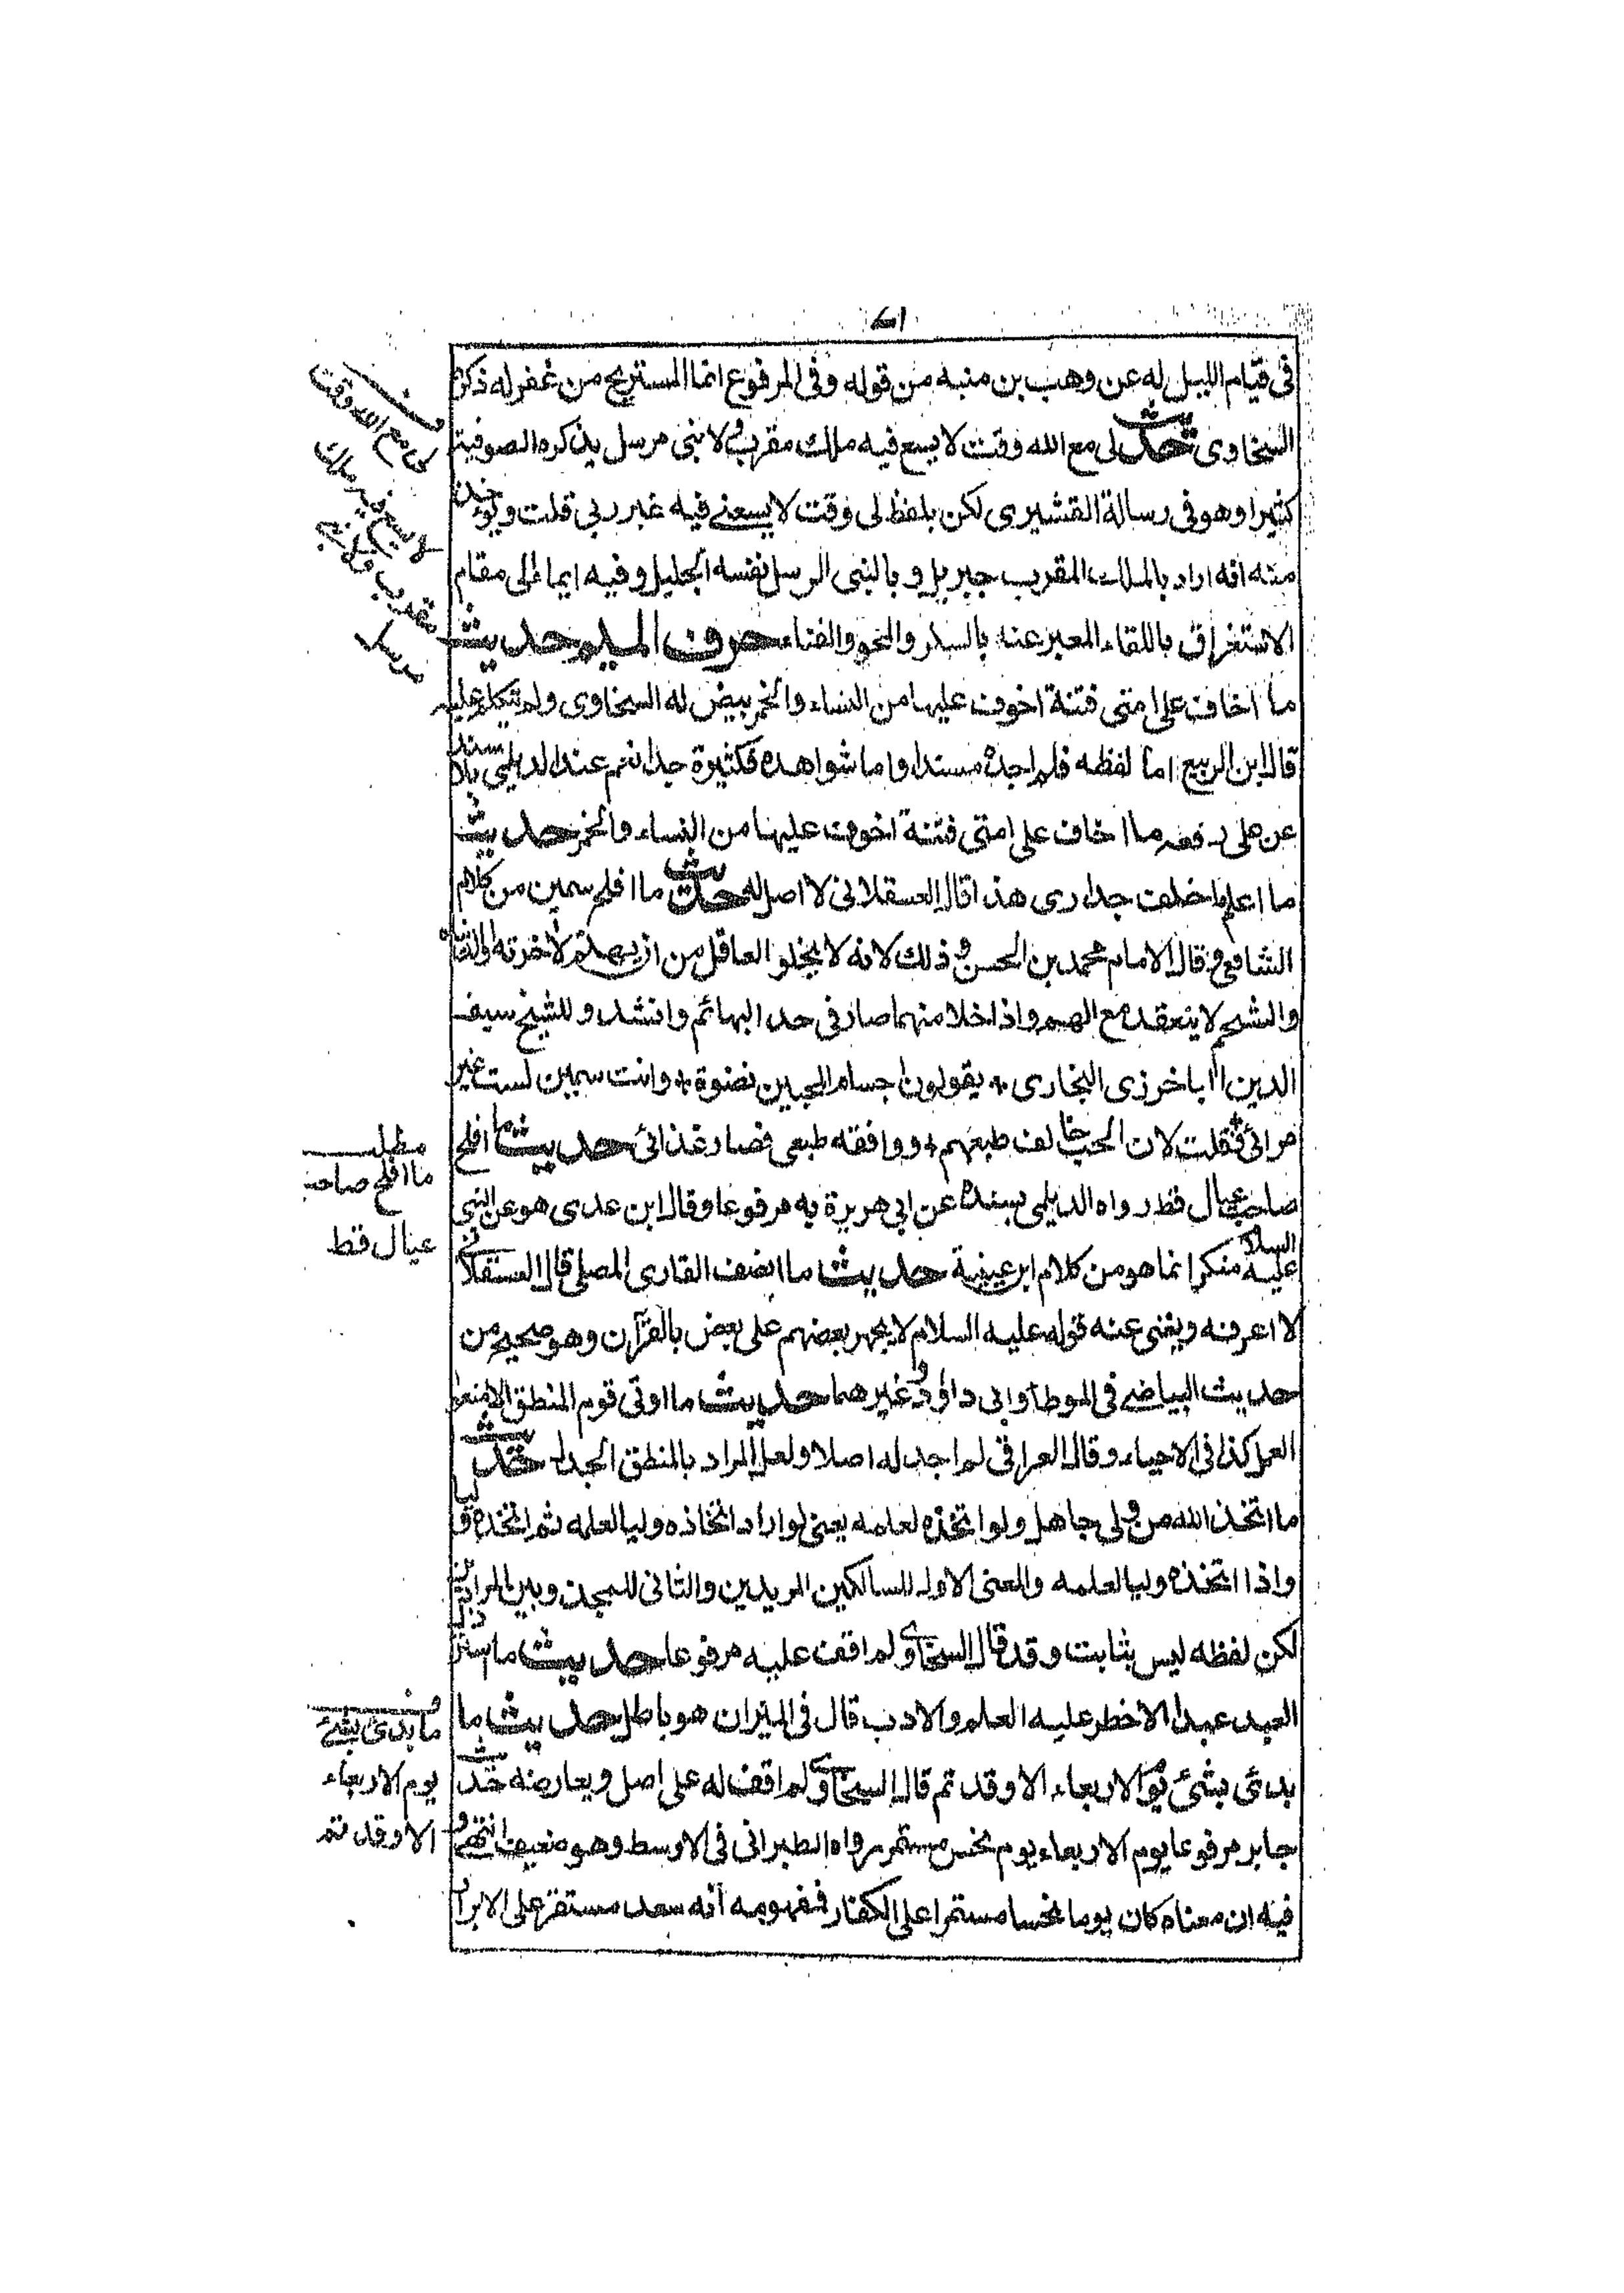 في قيام الليل له عن وهب بن منبه من قوله وفي المرفوع انما المستريح من غفر له ذكره
السخاوي حديث لى مع الله وقت لا يسع فيه ملك مقرب ولا نبى مرسل يذكره الصوفية
كثيرا وهو في رسالة القشيرى لكن بلفظ لى وقت لا يسعني فيه غير ربى قلت ويؤخذ
منه انه اراد بالملك المقرب جبريل و بالنبى المرسل نفسه الجليل وفيه ايماء الى مقام
الاستغراق باللقاء المعبر عنه بالسكر والمحو والفناء حرف الميم حديث
ما اخاف على امتى فتنة اخوف عليها من النساء والخمر بيض له السخاوى ولم يتكلم عليه
قال ابن الربيع اما لفظه فلم اجده مسندا واما شواهده فكثيرة جدا نعم عند الديلمي بلا سند
عن على رفعه ما اخاف على امتى فتنة اخوف عليها من النساء والخمر حديث
ما اعلم ما خلف جدارى هذا قال العسقلانى لا اصل له حديث ما افلح سمين من كلام
الشافعي وقال الامام محمد بن الحسن وذلك لانه لا يخلو العاقل من ان يهتم لآخرته او لدنياه
والشحم لا ينعقد مع الهم واذا خلا منهما صار في حد البهائم وانشد وللشيخ سيف
الدين الباخرزى البخارى * يقولون اجسام المحبين نضوة * وانت سمين لست غير
مرائى فقلت لان الحب خالف طبعهم * ووافقه طبعى فصار غذائى حديث ما افلح
صاحب عيال قط رواه الديلمى بسنده عن ابي هريرة به مرفوعا وقال ابن عدى هو عن النبى
عليه السلام منكر انما هو من كلام ابن عيينة حديث ما انصف القارى المصلى قال العسقلانى
لا اعرفه ويغنى عنه قوله عليه السلام لا يجهر بعضهم على بعض بالقرآن وهو صحيح من
حديث البياضي فى الموطا وابى داود وغيرهما حديث ما اوتى قوم المنطق الا منعوا
العمل كذا فى الاحياء وقال العراقى لم اجد له اصلا ولعل المراد بالمنطق الجدل حديث
ما اتخذ الله من ولى جاهل ولو اتخذه لعلمه يعنى لو اراد اتخاذه وليا لعلمه ثم اتخذه وليا
واذا اتخذه وليا لعلمه والمعنى الاول للسالكين المريدين والثانى للمجذوبين المرادين
لكن لفظه ليس بثابت وقد قال السخاوى لم اقف عليه مرفوعا حديث ما استرذل
العبد عبدا الا خطر عليه العلم والادب قال فى الميزان هو باطل حديث ما
بدئ بشئ يوم الاربعاء الا وقد تم قال السخاوى لم اقف له على اصل ويعارضه حديث
جابر مرفوعا يوم الاربعاء يوم نحس مستمر رواه الطبرانى فى الاوسط وهو ضعيف انتهى و
فيه ان معناه كان يوما نحسا مستمرا على الكفار فمفهومه انه سعد مستقر على الابرار
لى مع الله وقت
لا يسع فيه ملك
مقرب ولا نبى
مرسل
مطلب
ما افلح صاحب
عيال قط
ما بدئ بشئ
يوم الاربعاء
الا وقد تم